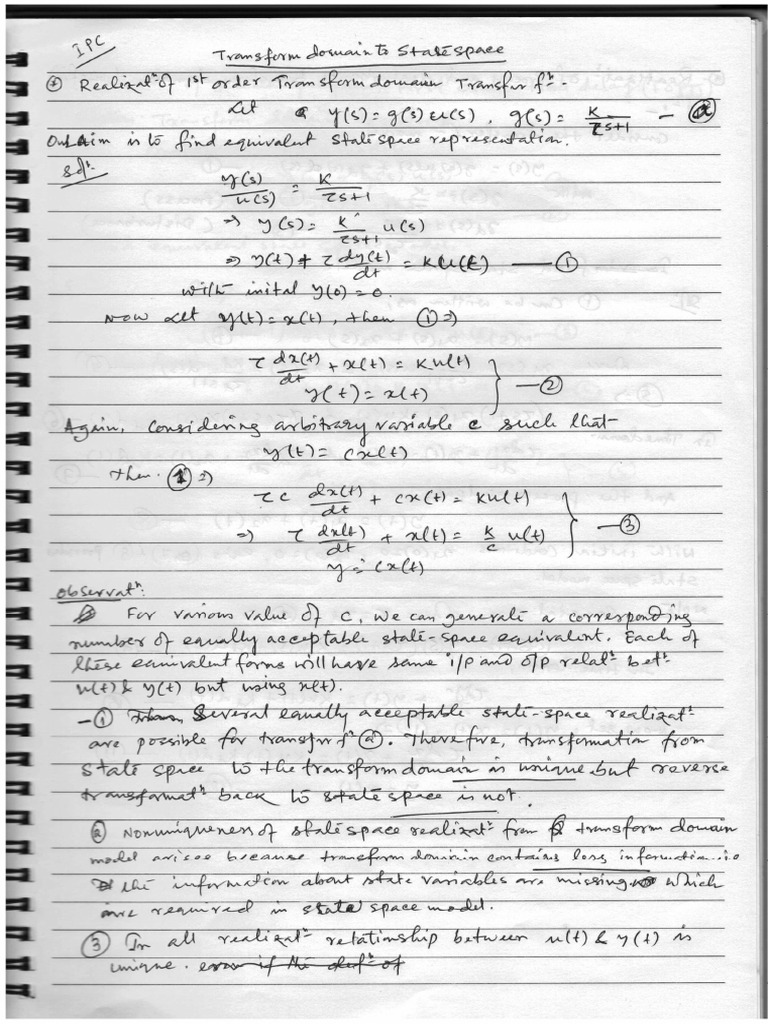 IPC
Transform domain to State space
① Realizatⁿ of 1st order Transform domain Transfer fⁿ :-
Let y(s) = g(s) u(s), g(s) = K/(τs+1) — ⓐ
Our Aim is to find equivalent state space representation.
Solⁿ.
y(s)/u(s) = K/(τs+1)
⇒ y(s) = K/(τs+1) u(s)
⇒ y(t) + τ dy(t)/dt = K u(t) — ①
with inital y(0) = 0.
Now Let y(t) = x(t), then ① ⇒
τ dx(t)/dt + x(t) = K u(t)
y(t) = x(t) } — ②
Again, Considering arbitrary variable c such that
y(t) = cx(t)
then. ① ⇒
τc dx(t)/dt + cx(t) = Ku(t)
⇒ τ dx(t)/dt + x(t) = K/c u(t) } — ③
y = cx(t)
Observatⁿ:
For various value of c, we can generate a corresponding
number of equally acceptable state-space equivalent. Each of
these equivalent forms will have same i/p and o/p relatⁿ betⁿ
u(t) & y(t) but using x(t).
— ① Several equally acceptable state-space realizatⁿ
are possible for transfer fⁿ ⓐ. Therefore, transformation from
state space to the transform domain is unique, but reverse
transformatⁿ back to state space is not.
② Nonuniqueness of state space realizatⁿ from transform domain
model arises because transform domain contains less information. i.e
the information about state variables are missing which
are required in state space model.
③ In all realizatⁿ relationship between u(t) & y(t) is
unique. even if the defⁿ of